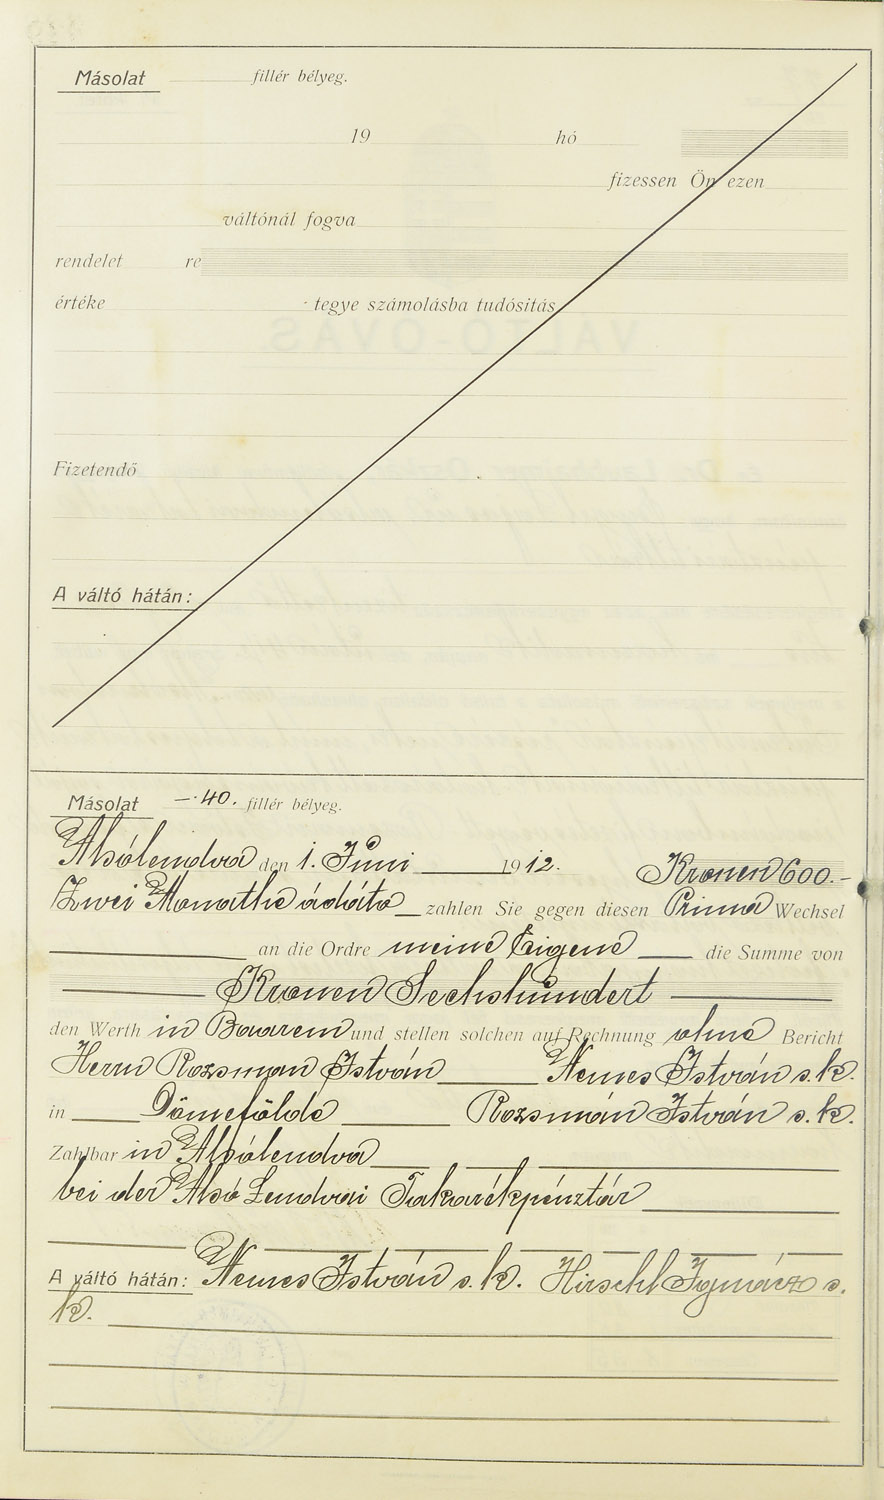 Másolat fillér bélyeg.
19 hó
fizessen Ön ezen
váltónál fogva
rendelet re
értéke tegye számolásba tudósitás
Fizetendő
A váltó hátán:
Másolat —·40. fillér bélyeg.
Alsólendva den 1. Juni 1912. Kronen 600.-
Zwei Monathe ádáto zahlen Sie gegen diesen Prima Wechsel
an die Ordre meine Eigene die Summe von
Kronen Sechshundert
den Werth in Baarem und stellen solchen auf Rechnung ohne Bericht
Herrn Rozsman István Nemes István s. k.
in Dömefölde Rozsmán István s. k.
Zahlbar in Alsólendva
bei der Alsó Lendvai Takarékpénztár
A váltó hátán: Nemes István s. k. Hirschl Ignácz s.
k.